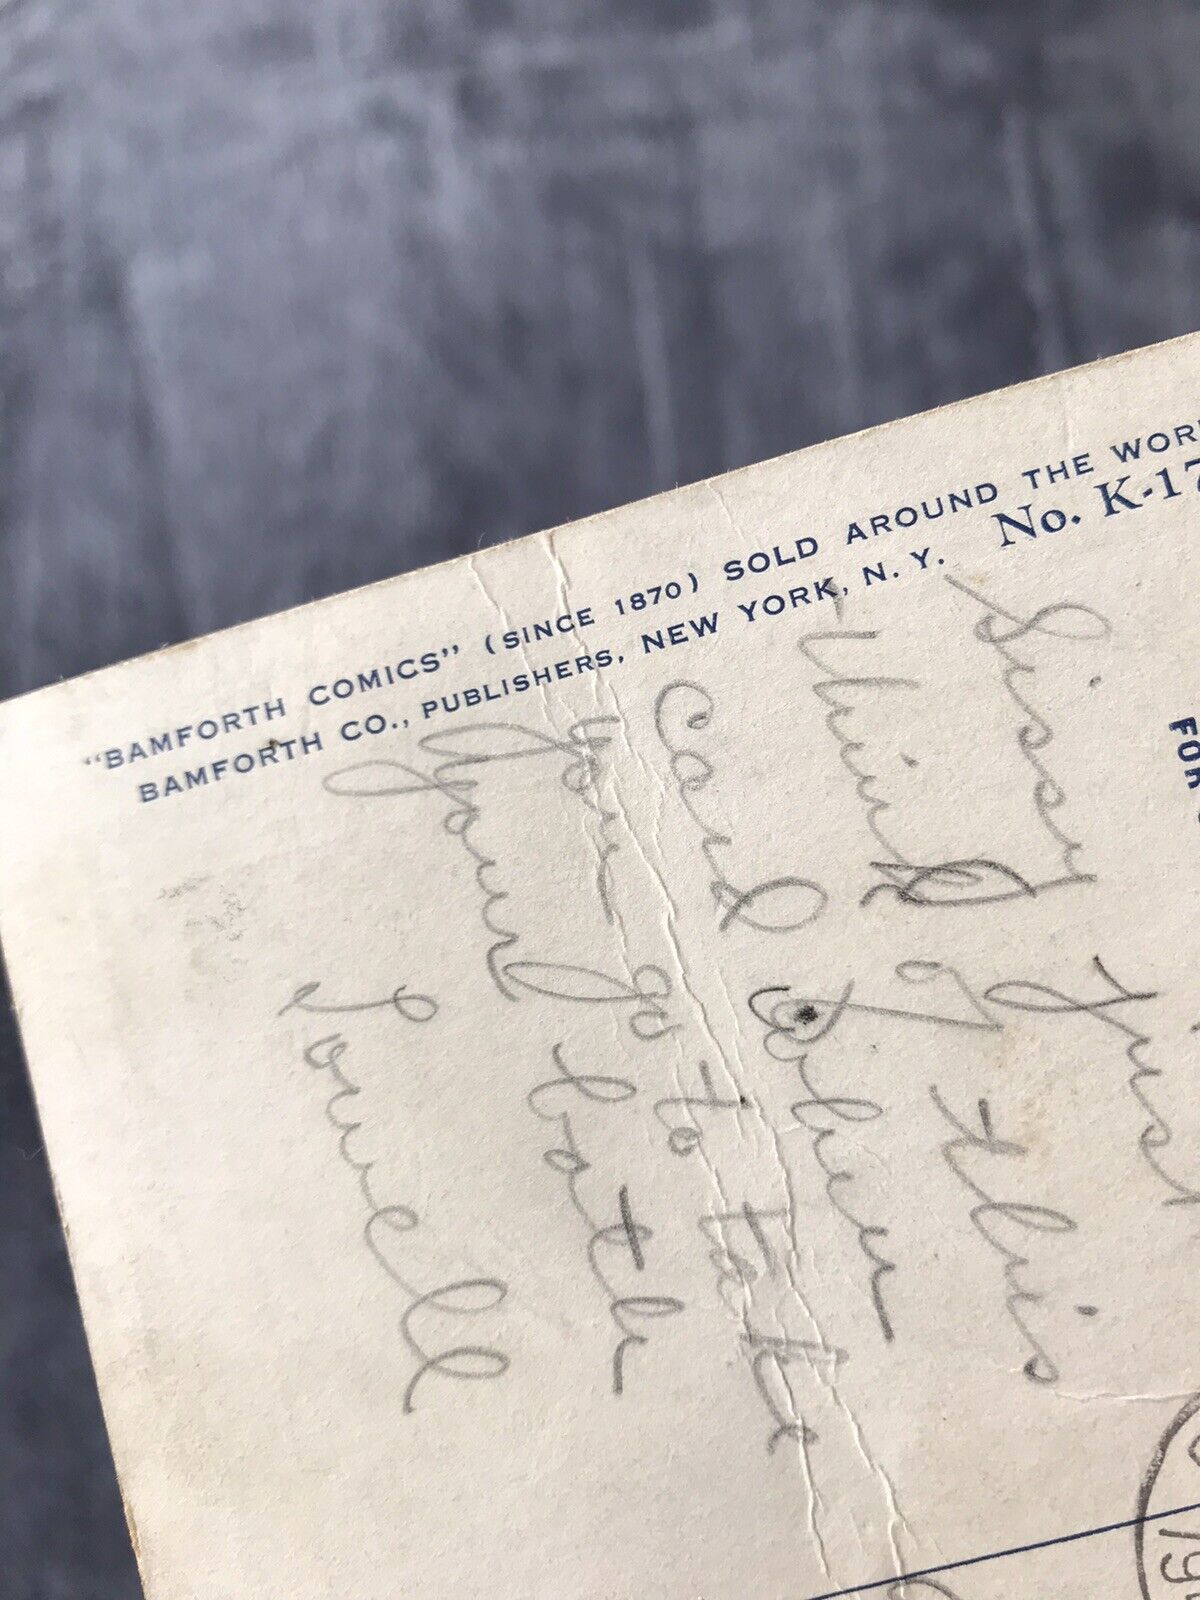 "BAMFORTH COMICS" (SINCE 1870) SOLD AROUND THE WOR
BAMFORTH CO., PUBLISHERS, NEW YORK, N. Y.
No. K-17
FOR
Sissy Just
think of this
card when
you go to take
your bath
Lowell
19